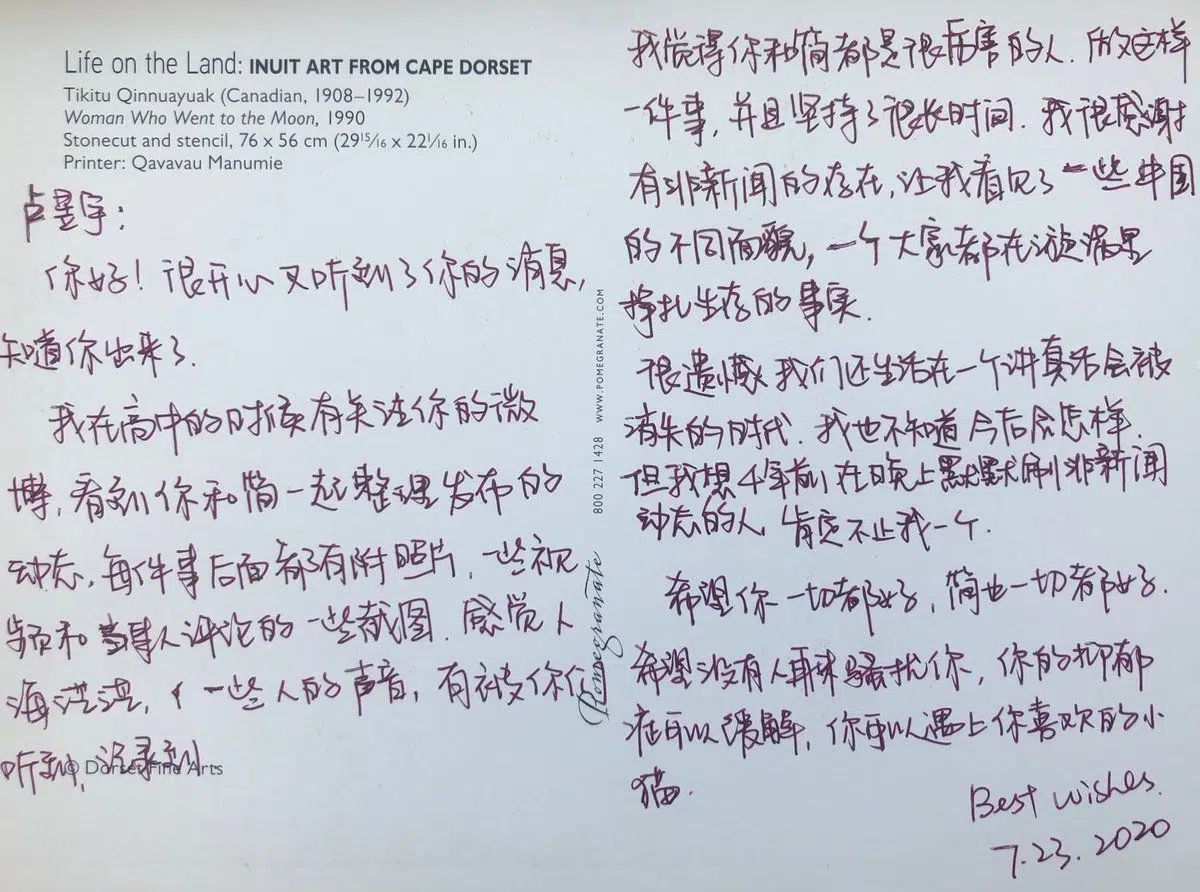 Life on the Land: INUIT ART FROM CAPE DORSET
Tikitu Qinnuayuak (Canadian, 1908–1992)
Woman Who Went to the Moon, 1990
Stonecut and stencil, 76 x 56 cm (29 15/16 x 22 1/16 in.)
Printer: Qavavau Manumie
卢昱宇：
你好！很开心又听到了你的消息，
知道你出来了.
我在高中的时候有关注你的微
博，看到你和简一起整理发布的
动态，每件事后面都有附照片，一些视
频和当事人评论的一些截图. 感觉人
海茫茫，一些人的声音，有被你们
听到，记录到
© Dorset Fine Arts
800 227 1428 WWW.POMEGRANATE.COM
Pomegranate
我觉得你和简都是很厉害的人. 所以这样
一件事，并且坚持了很长时间. 我很感谢
有非新闻的存在，让我看见了一些中国
的不同面貌，一个大家都在漩涡里
挣扎生存的事实.
很遗憾我们还生活在一个讲真话会被
消失的时代. 我也不知道今后会怎样.
但我想4年前在晚上默默刷非新闻
动态的人，肯定不止我一个.
希望你一切都好，简也一切都好.
希望没有人再来骚扰你，你的抑郁
症可以缓解，你可以遇上你喜欢的小
猫.
Best wishes.
7.23.2020